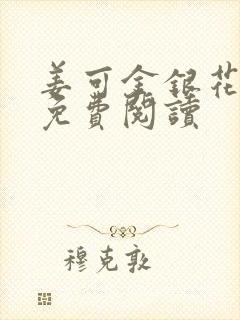 姜可金銀花
免費閱讀
穆克敦